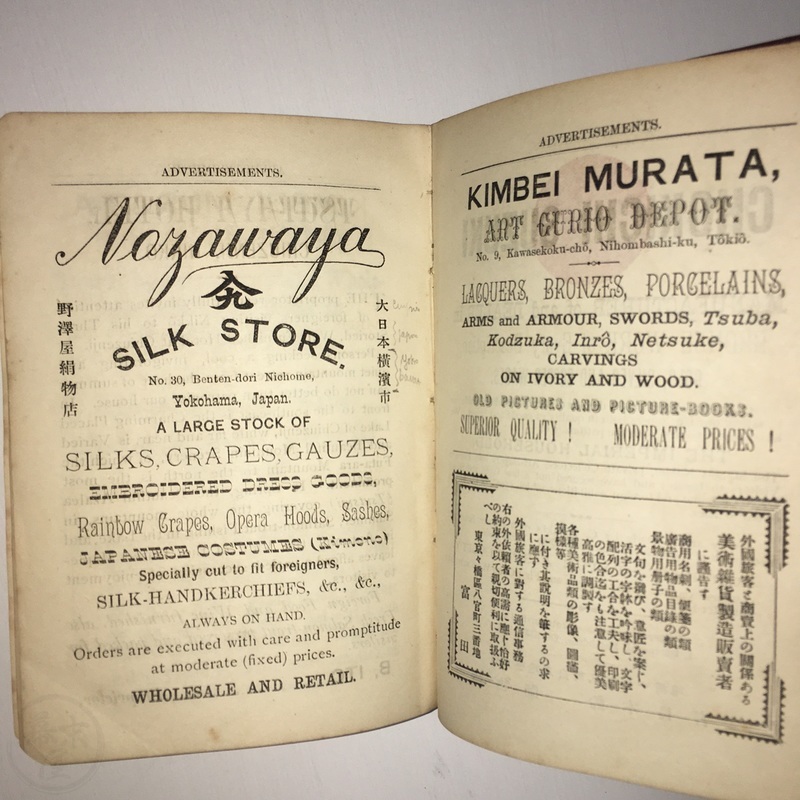 ADVERTISEMENTS.
Nozawaya
SILK STORE.
野澤屋絹物店
大日本橫濱市
No. 30, Benten-dori Nichome,
Yokohama, Japan.
A LARGE STOCK OF
SILKS, CRAPES, GAUZES,
EMBROIDERED DRESS GOODS,
Rainbow Crapes, Opera Hoods, Sashes,
JAPANESE COSTUMES (Kimono)
Specially cut to fit foreigners,
SILK-HANDKERCHIEFS, &c., &c.,
ALWAYS ON HAND.
Orders are executed with care and promptitude
at moderate (fixed) prices.
WHOLESALE AND RETAIL.
ADVERTISEMENTS.
KIMBEI MURATA,
ART CURIO DEPOT.
No. 9, Kawasekoku-chō, Nihombashi-ku, Tōkiō.
LACQUERS, BRONZES, PORCELAINS,
ARMS and ARMOUR, SWORDS, Tsuba,
Kodzuka, Inrō, Netsuke,
CARVINGS
ON IVORY AND WOOD.
OLD PICTURES AND PICTURE-BOOKS.
SUPERIOR QUALITY ! MODERATE PRICES !
外國旅客と商賣上の關係ある
美術雜貨製造販賣者
に謹告す
商用名刺、便箋の類
廣告用物品目錄の類
景物用册子の類
文句を選び、意匠を案じ、
活字の字躰を吟味し、文字
配列の工合を工夫し、印刷
の色合迄をも注意して優美
高雅に調製す
各種美術品類の彫像、圖畵、
摸樣等
に付き其說明を筆するの求
に應す
外國旅客に對する通信事務
右の外依賴者の高需に應じ恰好
の約束を以て親切便利に取扱ふ
べし
東京京橋區八官町三番地
富田